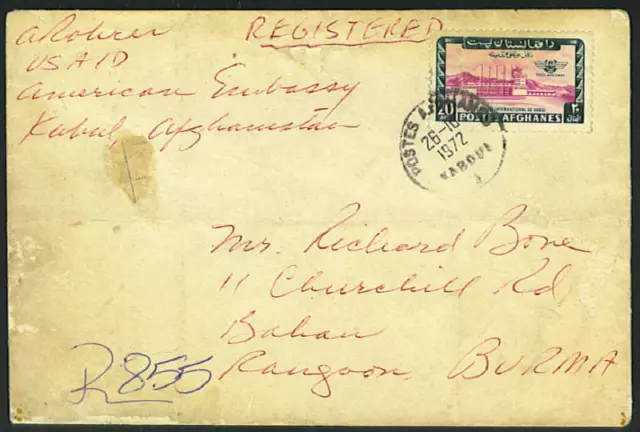 REGISTERED
A Rohrer
USAID
American Embassy
Kabul, Afghanistan
20
INTERNATIONAL DE KABUL
POSTES AFGHANES
POSTES
26-10
1972
KABOUL
Mr. Richard Bone
11 Churchill Rd
Bahan
Rangoon, BURMA
R 855